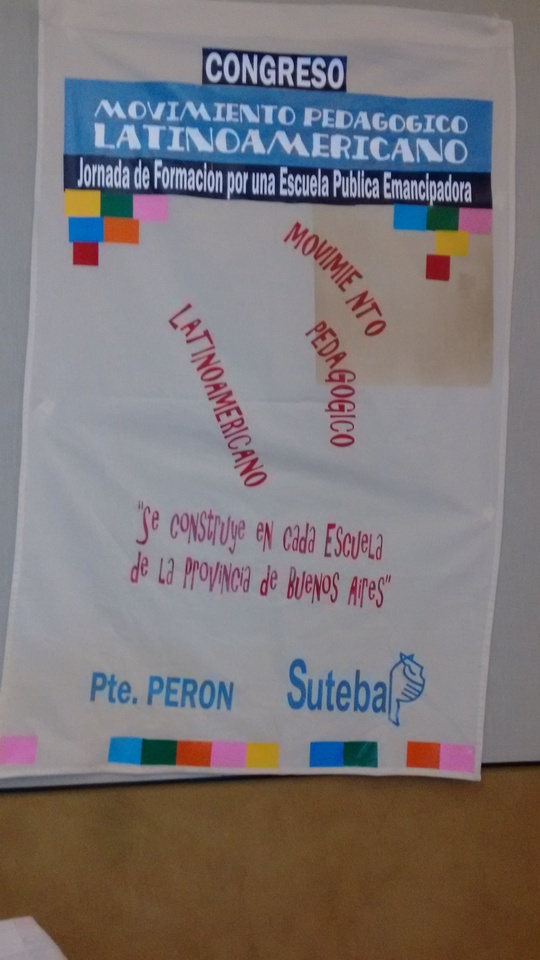 CONGRESO
MOVIMIENTO PEDAGOGICO
LATINOAMERICANO
Jornada de Formacion por una Escuela Publica Emancipadora
MOVIMIE NTO
PEDAGOGICO
LATINOAMERICANO
"Se construye en cada Escuela
de la Provincia de Buenos Aires"
Pte. PERON
Suteba